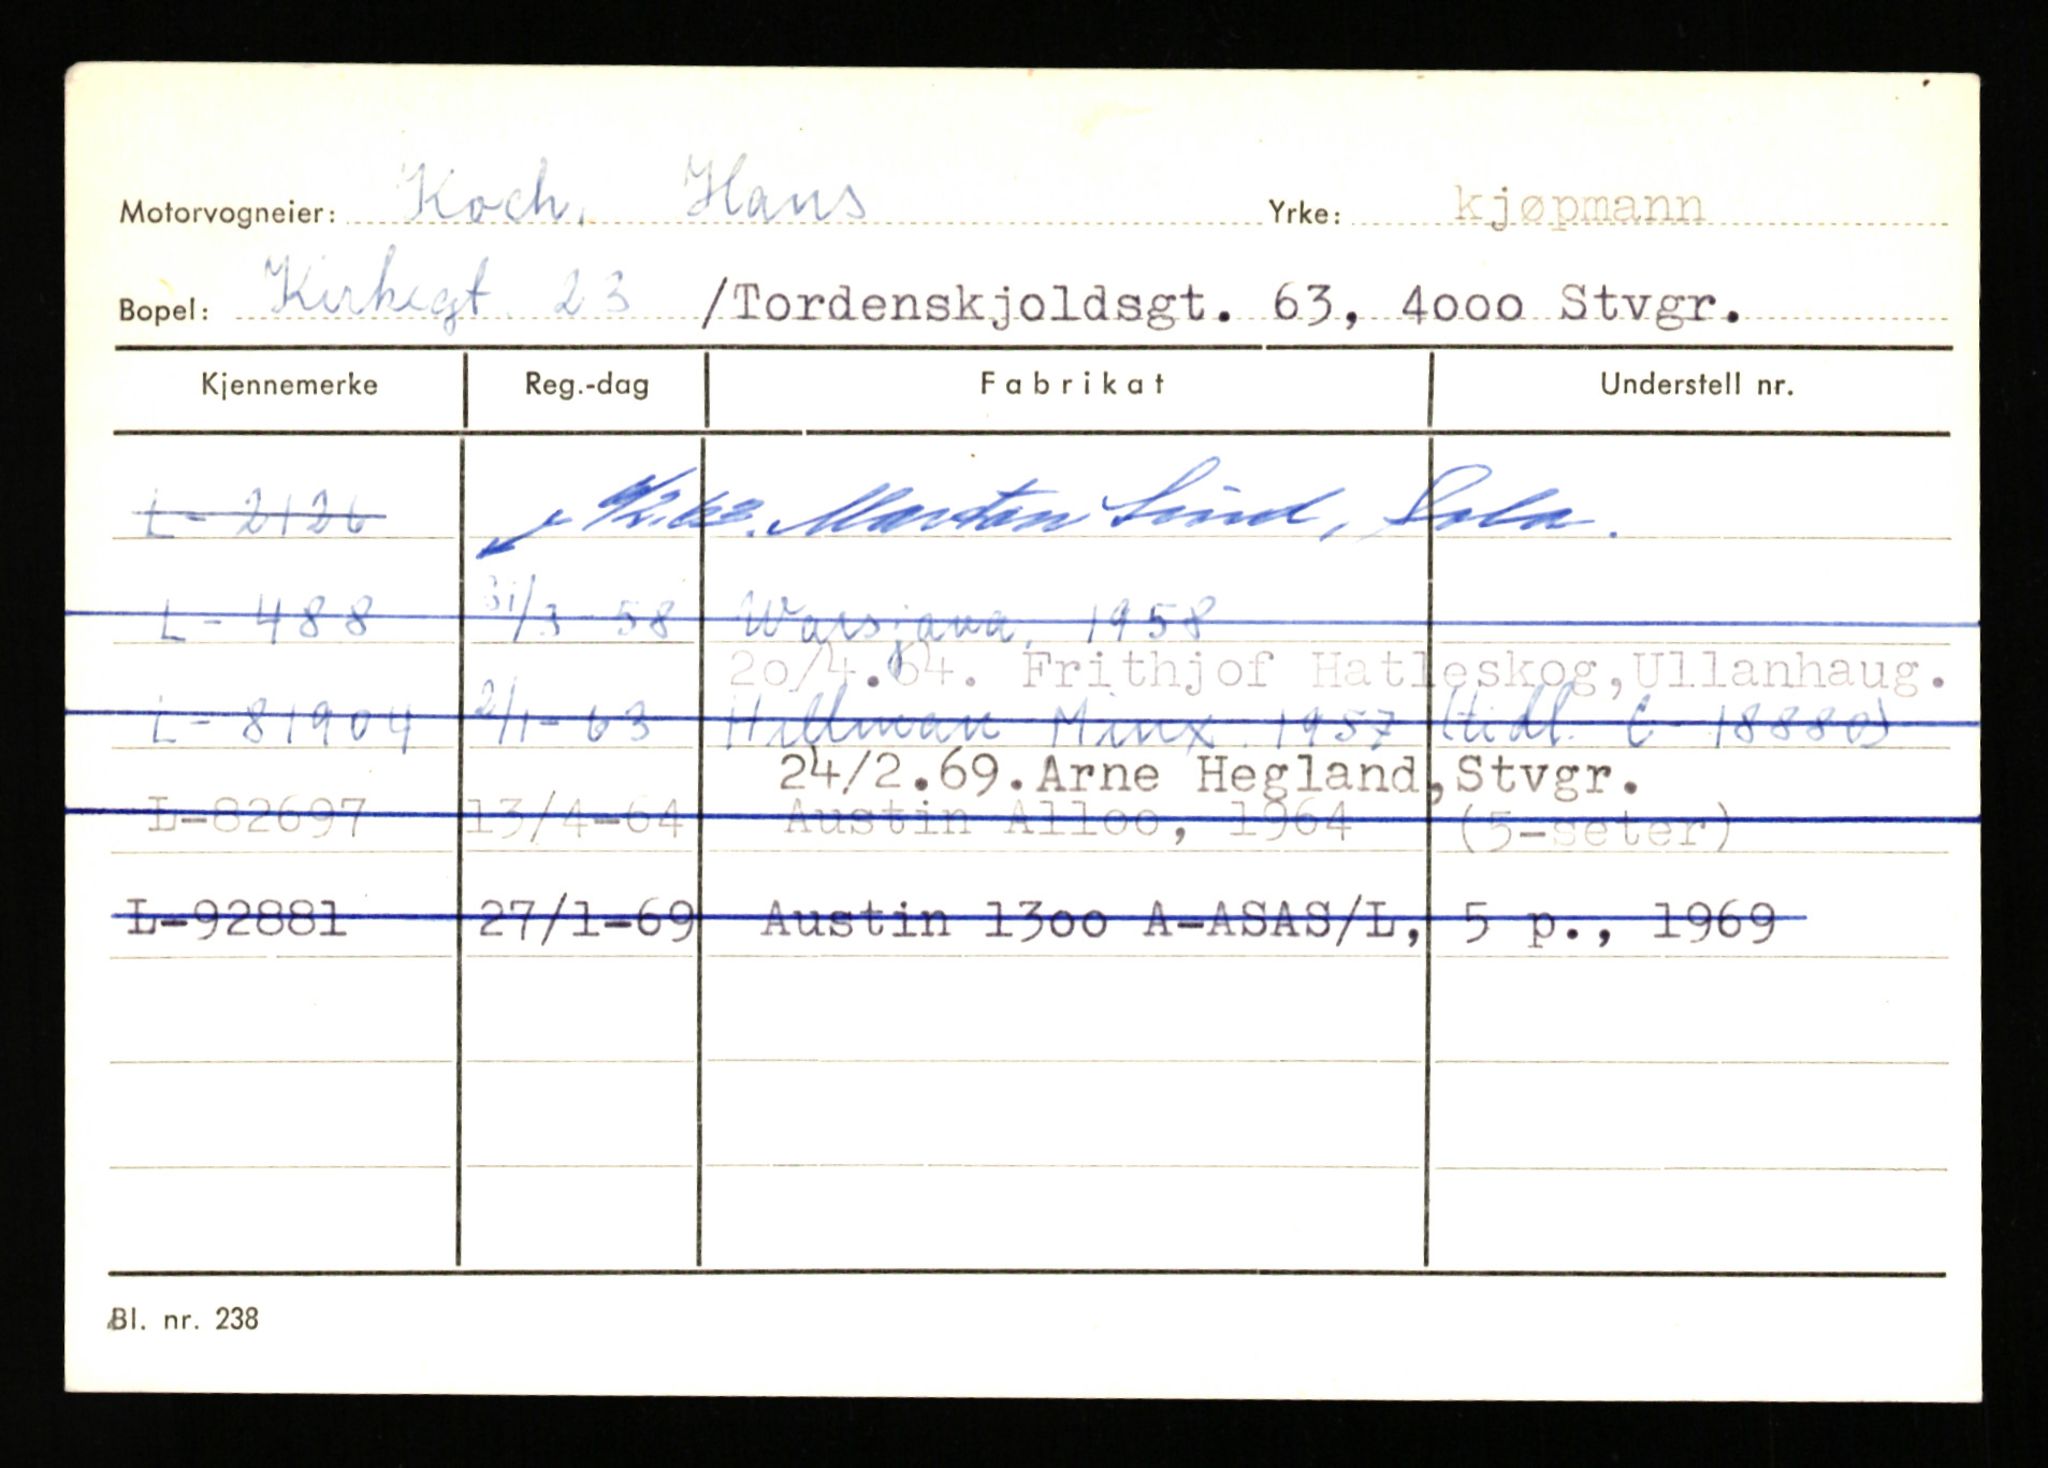 Motorvogneier: Koch, Hans Yrke: kjøpmann
Bopel: Kirkegt 23 /Tordenskjoldsgt. 63, 4ooo Stvgr.
Kjennemerke Reg.-dag Fabrikat Understell nr.
L- 2126 /2.63. Morten Sund, Sola.
L- 488 31/3 58 Warsjava, 1958
2o/4.64. Frithjof Hatleskog,Ullanhaug.
L- 81904 2/1- 63 Hillman Minx 1957 (tidl. L- 18880)
24/2.69.Arne Hegland,Stvgr.
L-82697 13/4-64 Austin A11oo, 1964 (5-seter)
L-92881 27/1-69 Austin 13oo A-ASAS/L, 5 p., 1969
Bl. nr. 238